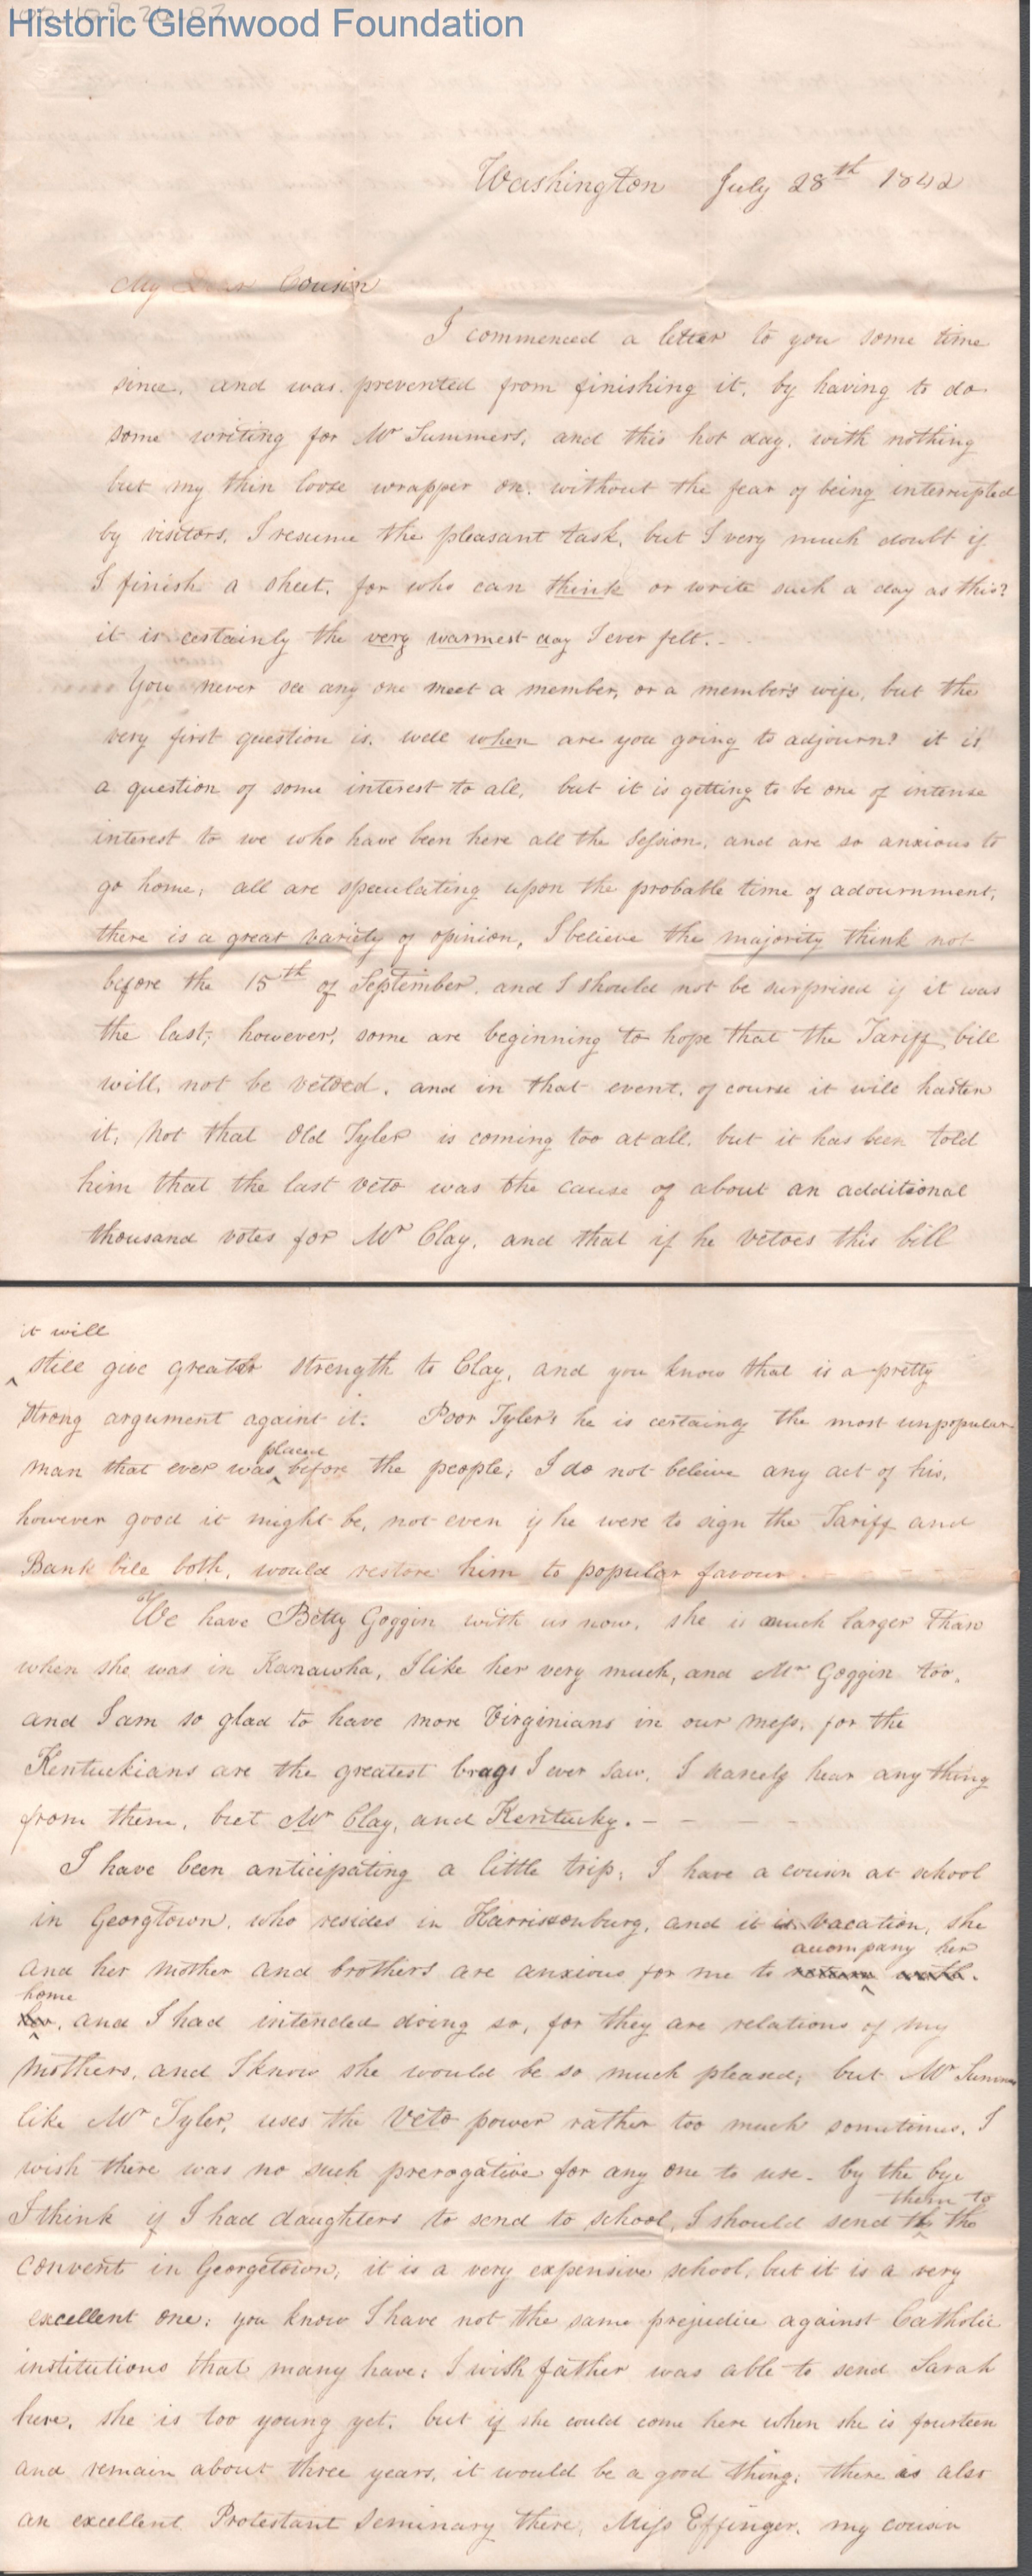 Historic Glenwood Foundation
Washington July 28th 1842
My Dear Cousin
I commenced a letter to you some time
since, and was prevented from finishing it, by having to do
some writing for Mr Summers, and this hot day, with nothing
but my thin loose wrapper on, without the fear of being interrupted
by visitors, I resume the pleasant task, but I very much doubt if
I finish a sheet, for who can think or write such a day as this?
it is certainly the very warmest day I ever felt. -
You never see any one meet a member, or a member's wife, but the
very first question is, well when are you going to adjourn? it is
a question of some interest to all, but it is getting to be one of intense
interest to we who have been here all the Session, and are so anxious to
go home; all are speculating upon the probable time of adournment,
there is a great variety of opinion, I believe the majority think not
before the 15th of September, and I should not be surprised if it was
the last; however, some are beginning to hope that the Tariff bill
will, not be vetoed, and in that event, of course it will hasten
it; not that Old Tyler is coming too at all, but it has been told
him that the last veto was the cause of about an additional
thousand votes for Mr Clay, and that if he vetoes this bill
it will
^ still give greater strength to Clay, and you know that is a pretty
strong argument againt it. Poor Tyler! he is certainly the most unpopular
placed
man that ever was ^ before the people; I do not beleive any act of his,
however good it might be, not even if he were to sign the Tariff and
Bank bill both, would restore him to popular favour.
We have Betty Goggin with us now, she is much larger than
when she was in Kanawha, I like her very much, and Mr Goggin too,
and I am so glad to have more Virginians in our mess, for the
Kentuckians are the greatest brags I ever saw, I scarcely hear any thing
from them, but Mr Clay, and Kentucky. - - - -
I have been anticipating a little trip; I have a cousin at school
in Georgtown, who resides in Harrisonburg, and it is vacation, she
accompany her
and her mother and brothers are anxious for me to return ^ with.
home
her, and I had intended doing so, for they are relations of my
mothers, and I know she would be so much pleased; but Mr Summers
like Mr Tyler, uses the veto power rather too much sometimes, I
wish there was no such prerogative for any one to use - by the bye
them to
I think if I had daughters to send to school, I should send ^ the
convent in Georgetown; it is a very expensive school, but it is a very
excellent one; you know I have not the same prejudice against Catholic
institutions that many have; I wish father was able to send Sarah
here, she is too young yet, but if she could come here when she is fourteen
and remain about three years, it would be a good thing; there is also
an excellent Protestant Seminary there, Miss Effinger, my cousin